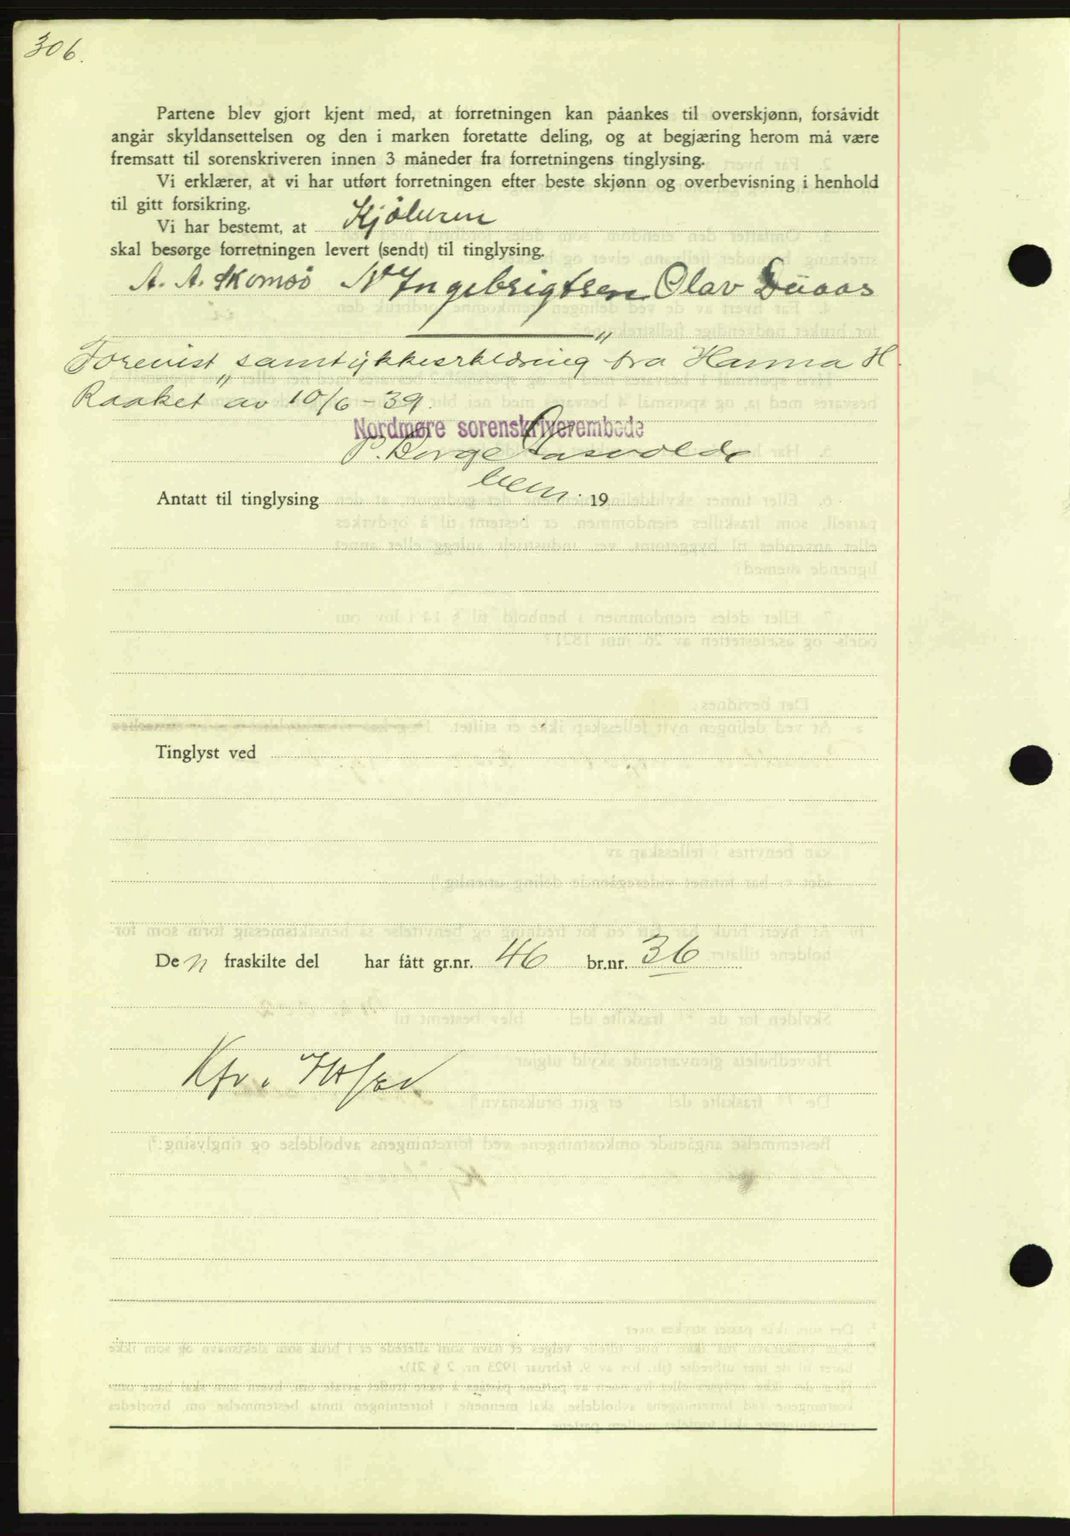 306.
Partene blev gjort kjent med, at forretningen kan påankes til overskjønn, forsåvidt
angår skyldansettelsen og den i marken foretatte deling, og at begjæring herom må være
fremsatt til sorenskriveren innen 3 måneder fra forretningens tinglysing.
Vi erklærer, at vi har utført forretningen efter beste skjønn og overbevisning i henhold
til gitt forsikring.
Vi har bestemt, at Kjøberen
skal besørge forretningen levert (sendt) til tinglysing.
A. A. Skomsö N Ingebrigtsen Olav Duaas
Forevist samtykkeerklæring fra Hanna H.
Raaket av 10/6-39.
Nordmøre sorenskriverembede
Antatt til tinglysing 19
Tinglyst ved
Den fraskilte del har fått gr.nr. 46 br.nr. 36